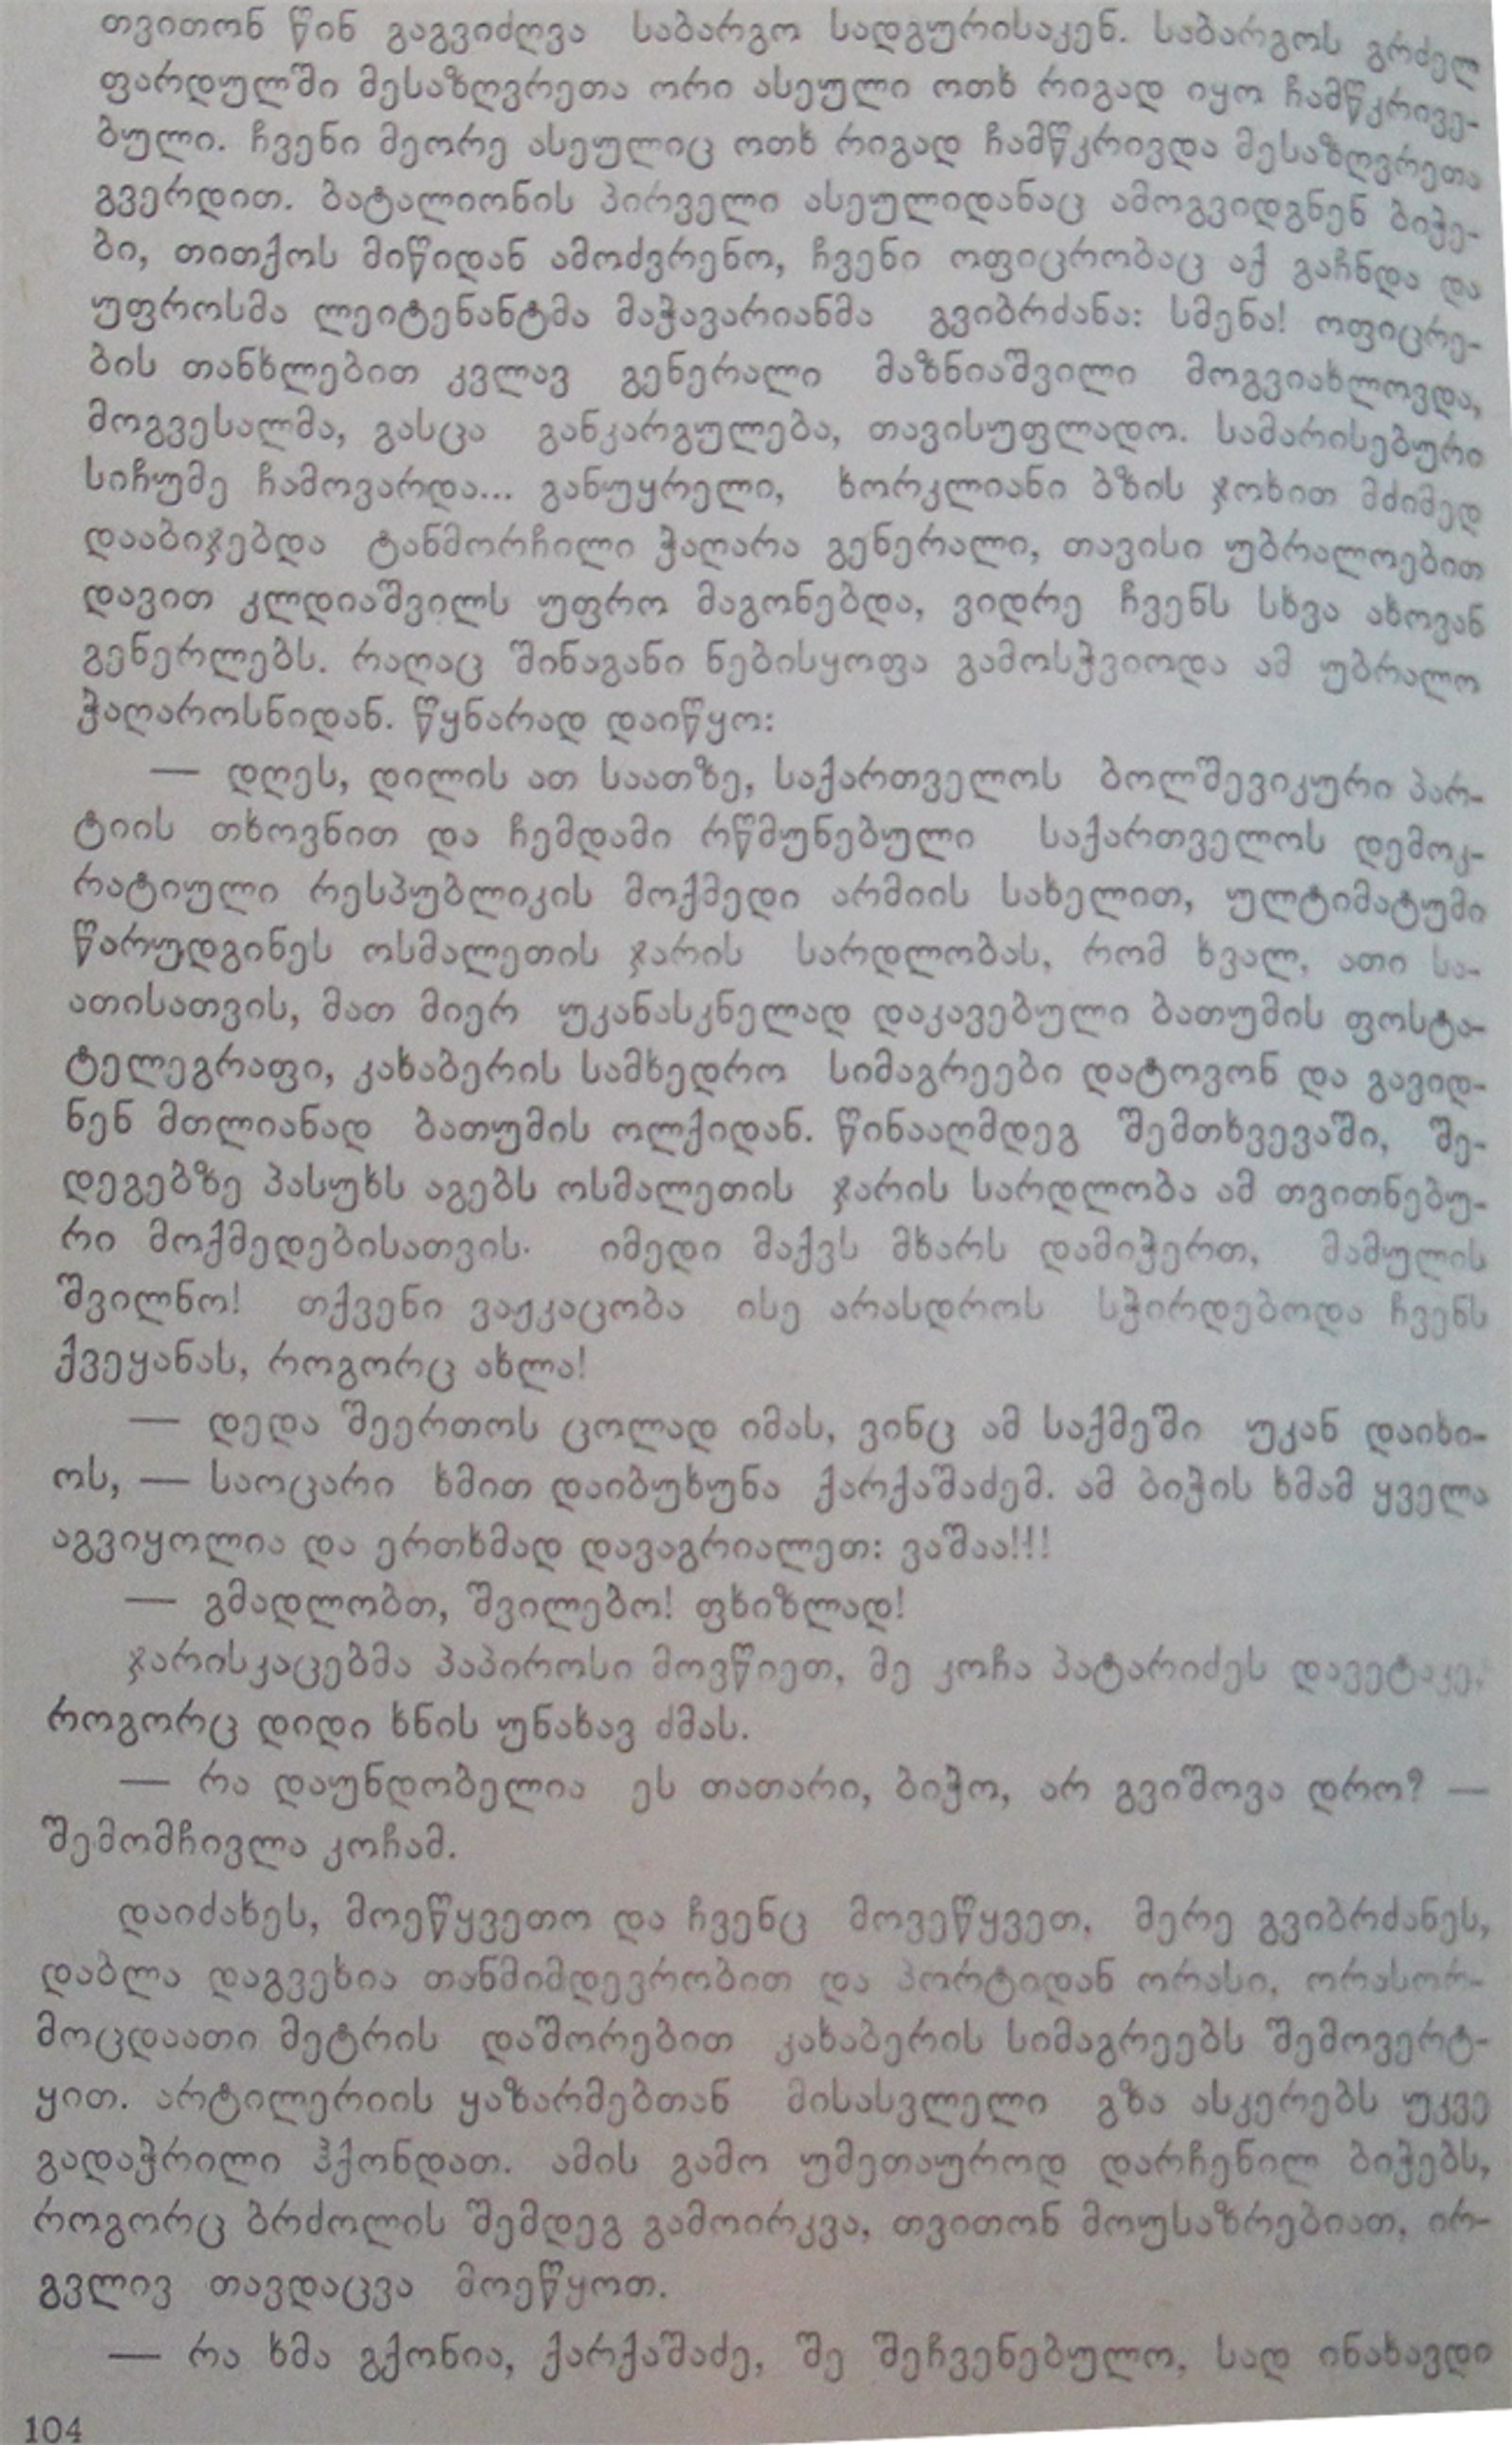 თვითონ წინ გაგვიძღვა საბარგო სადგურისაკენ. საბარგოს გრძელ
ფარდულში მესაზღვრეთა ორი ასეული ოთხ რიგად იყო ჩამწკრივე-
ბული. ჩვენი მეორე ასეულიც ოთხ რიგად ჩამწკრივდა მესაზღვრეთა
გვერდით. ბატალიონის პირველი ასეულიდანაც ამოგვიდგნენ ბიჭე-
ბი, თითქოს მიწიდან ამოძვრენო, ჩვენი ოფიცრობაც აქ გაჩნდა და
უფროსმა ლეიტენანტმა მაჭავარიანმა გვიბრძანა: სმენა! ოფიცრე-
ბის თანხლებით კვლავ გენერალი მაზნიაშვილი მოგვიახლოვდა,
მოგვესალმა, გასცა განკარგულება, თავისუფლადო. სამარისებური
სიჩუმე ჩამოვარდა... განუყრელი, ხორკლიანი ბზის ჯოხით მძიმედ
დააბიჯებდა ტანმორჩილი ჭაღარა გენერალი, თავისი უბრალოებით
დავით კლდიაშვილს უფრო მაგონებდა, ვიდრე ჩვენს სხვა ახოვან
გენერლებს. რაღაც შინაგანი ნებისყოფა გამოსჭვიოდა ამ უბრალო
ჭაღაროსნიდან. წყნარად დაიწყო:
— დღეს, დილის ათ საათზე, საქართველოს ბოლშევიკური პარ-
ტიის თხოვნით და ჩემდამი რწმუნებული საქართველოს დემოკ-
რატიული რესპუბლიკის მოქმედი არმიის სახელით, ულტიმატუმი
წარუდგინეს ოსმალეთის ჯარის სარდლობას, რომ ხვალ, ათი სა-
ათისათვის, მათ მიერ უკანასკნელად დაკავებული ბათუმის ფოსტა-
ტელეგრაფი, კახაბერის სამხედრო სიმაგრეები დატოვონ და გავიდ-
ნენ მთლიანად ბათუმის ოლქიდან. წინააღმდეგ შემთხვევაში, შე-
დეგებზე პასუხს აგებს ოსმალეთის ჯარის სარდლობა ამ თვითნებუ-
რი მოქმედებისათვის. იმედი მაქვს მხარს დამიჭერთ, მამულის
შვილნო! თქვენი ვაჟკაცობა ისე არასდროს სჭირდებოდა ჩვენს
ქვეყანას, როგორც ახლა!
— დედა შეერთოს ცოლად იმას, ვინც ამ საქმეში უკან დაიხი-
ოს, — საოცარი ხმით დაიბუხუნა ქარქაშაძემ. ამ ბიჭის ხმამ ყველა
აგვიყოლია და ერთხმად დავაგრიალეთ: ვაშაა!!!
— გმადლობთ, შვილებო! ფხიზლად!
ჯარისკაცებმა პაპიროსი მოვწიეთ, მე კოჩა პატარიძეს დავეტაკე,
როგორც დიდი ხნის უნახავ ძმას.
— რა დაუნდობელია ეს თათარი, ბიჭო, არ გვიშოვა დრო? —
შემომჩივლა კოჩამ.
დაიძახეს, მოეწყვეთო და ჩვენც მოვეწყვეთ, მერე გვიბრძანეს,
დაბლა დაგვეხია თანმიმდევრობით და პორტიდან ორასი, ორასორ-
მოცდაათი მეტრის დაშორებით კახაბერის სიმაგრეებს შემოვერტ-
ყით. არტილერიის ყაზარმებთან მისასვლელი გზა ასკერებს უკვე
გადაჭრილი ჰქონდათ. ამის გამო უმეთაუროდ დარჩენილ ბიჭებს,
როგორც ბრძოლის შემდეგ გამოირკვა, თვითონ მოუსაზრებიათ, ირ-
გვლივ თავდაცვა მოეწყოთ.
— რა ხმა გქონია, ქარქაშაძე, შე შეჩვენებულო, სად ინახავდი
104